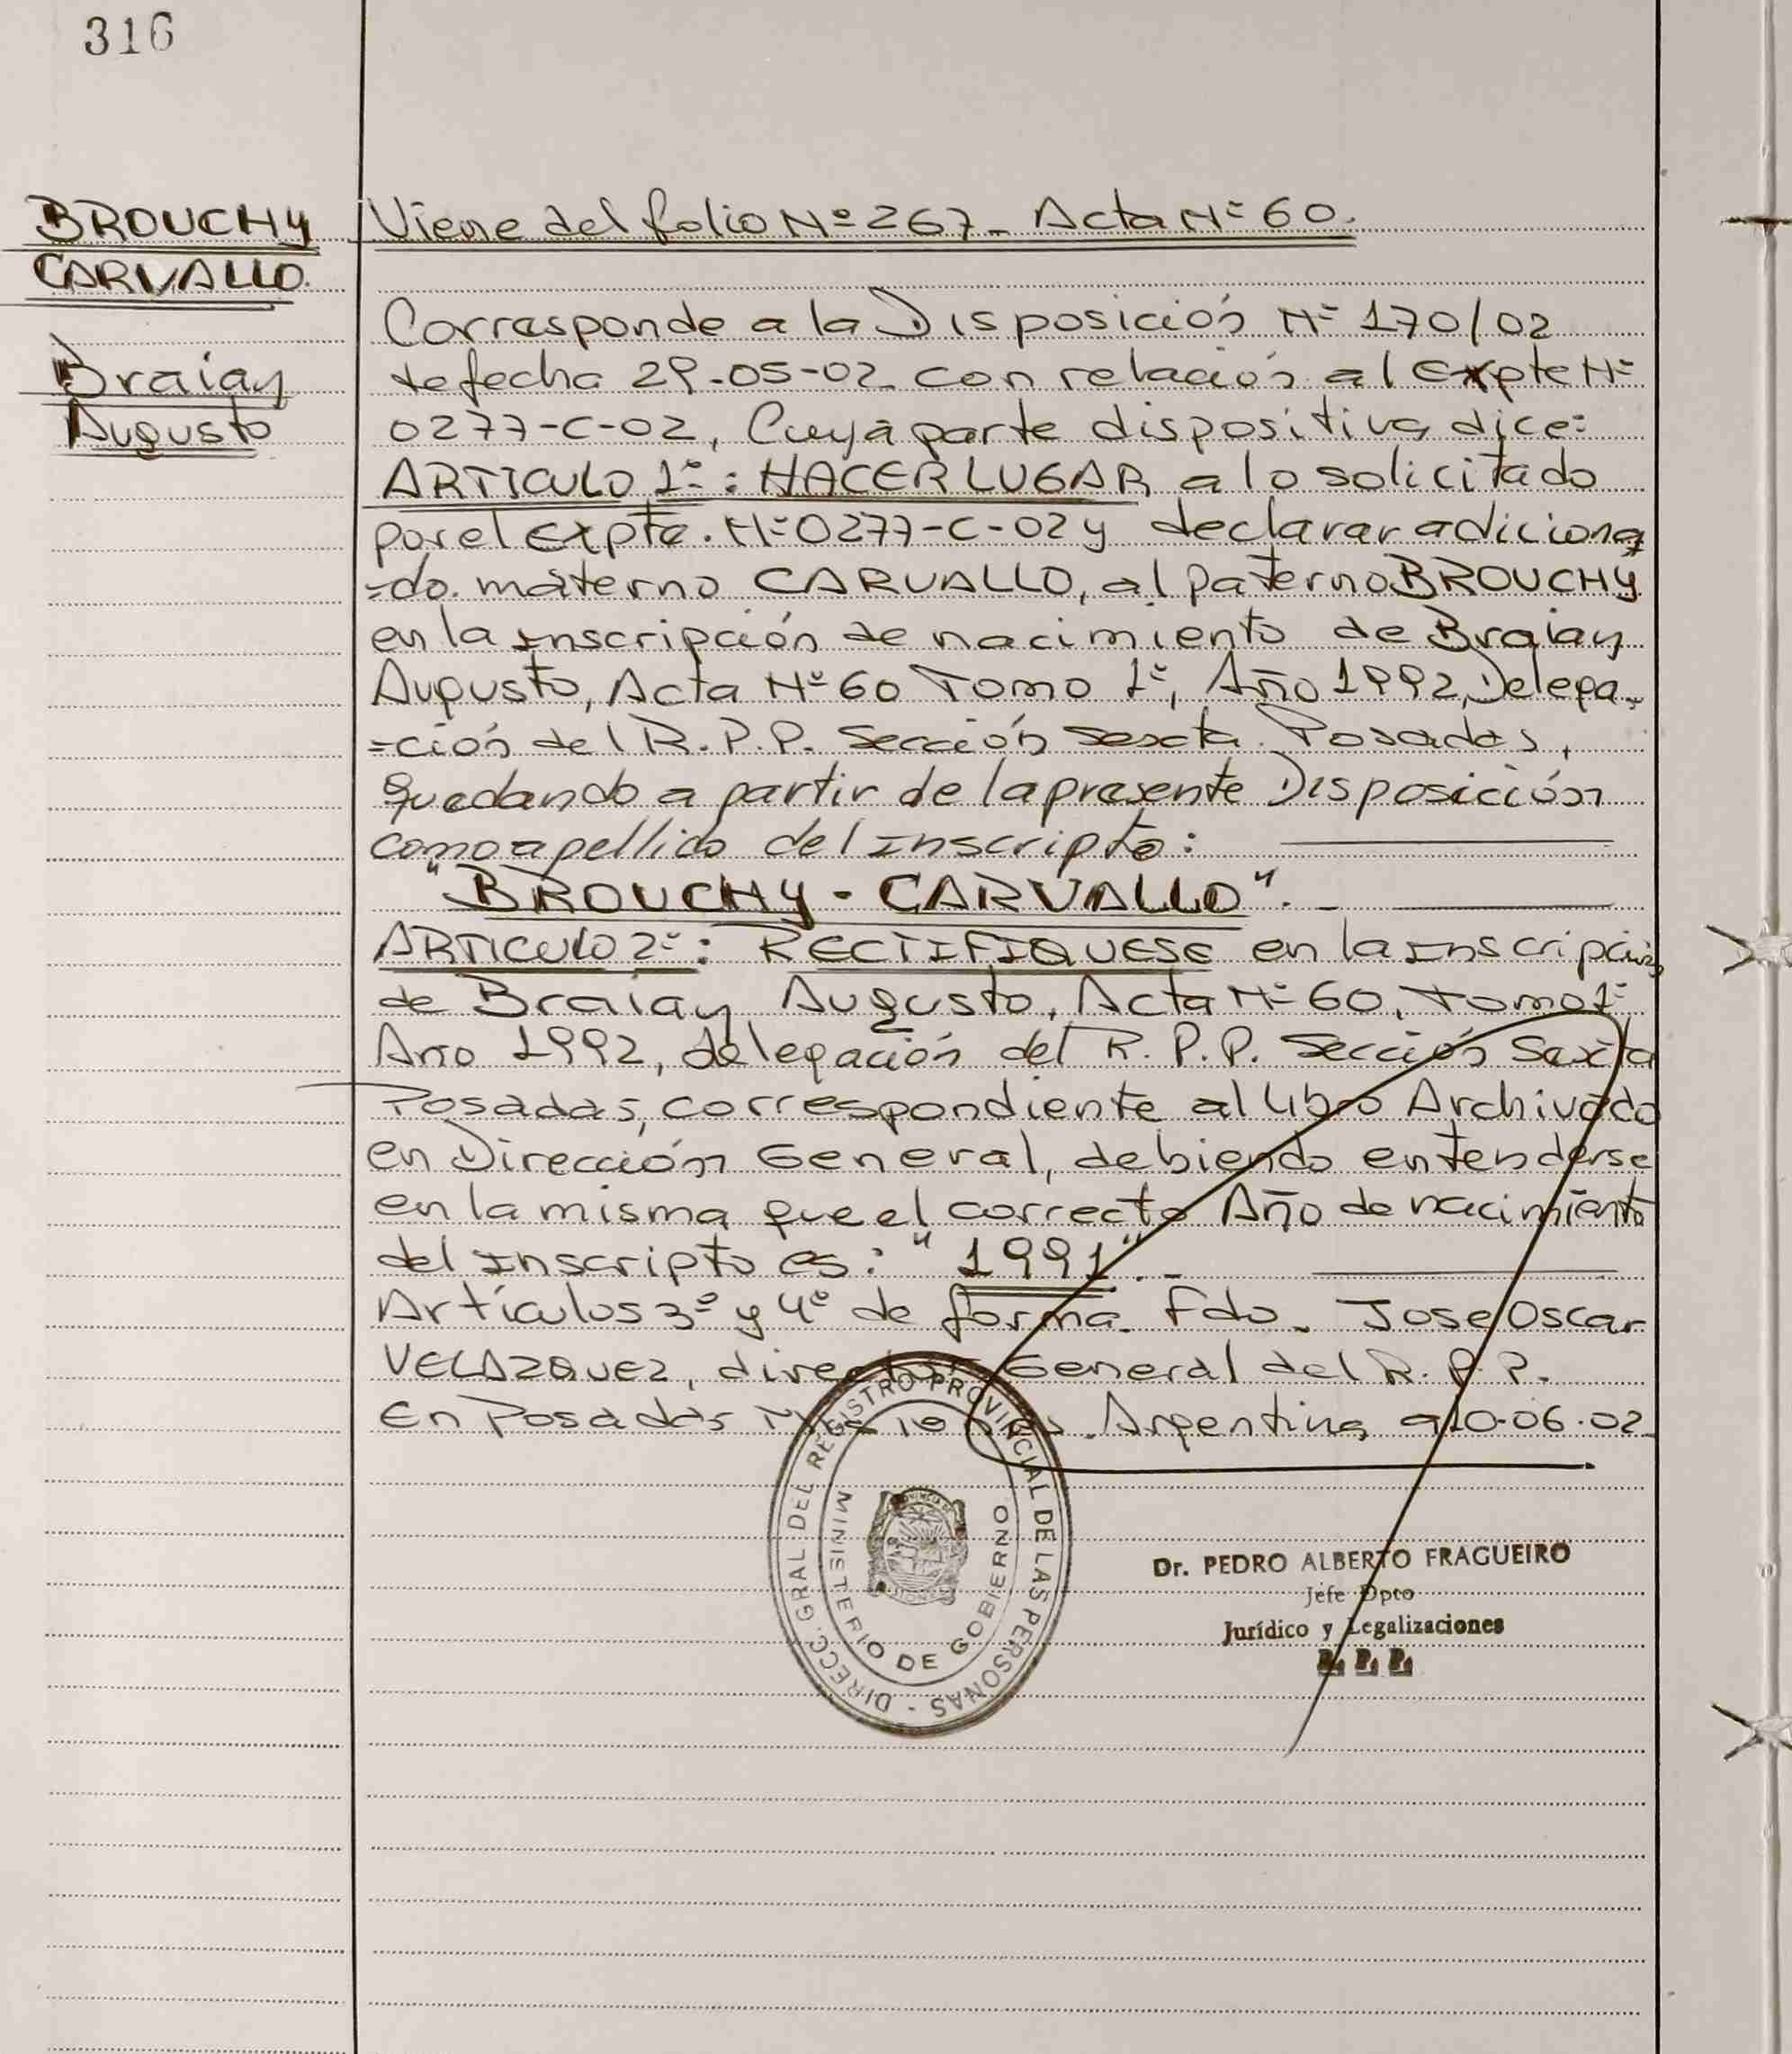 316
BROUCHY
CARVALLO.
Braian
Augusto
Viene del folio Nº 267_ Acta Nº 60.
Corresponde a la Disposición Nº 170/02
de fecha 29-05-02 con relación al Expte Nº
0277-C-02, Cuya parte dispositiva dice:
ARTICULO 1º: HACER LUGAR a lo solicitado
por el Expte. Nº 0277-C-02 y declarar adiciona
=do. materno CARVALLO, al paterno BROUCHY
en la Inscripción de nacimiento de Braian
Augusto, Acta Nº 60 Tomo 1º, Año 1992, Delega-
=ción del R.P.P. Sección Sexta Posadas,
quedando a partir de la presente Disposición
como apellido del Inscripto:
"BROUCHY - CARVALLO".
ARTICULO 2º: RECTIFIQUESE en la Inscripción
de Braian Augusto, Acta Nº 60, Tomo 1º
Año 1992, delegación del R.P.P. Sección Sexta
Posadas, correspondiente al Libro Archivado
en Dirección General, debiendo entenderse
en la misma que el correcto Año de nacimiento
del Inscripto es: "1991".-
Artículos 3º y 4º de forma. Fdo. Jose Oscar
VELAZQUEZ, director General del R.P.P.
En Posadas Misiones. Argentina a 10-06-02
DIRECC. GRAL DEL REGISTRO PROVINCIAL DE LAS PERSONAS -
MINISTERIO DE GOBIERNO
Dr. PEDRO ALBERTO FRAGUEIRO
Jefe Dpto
Jurídico y Legalizaciones
R. P. P.